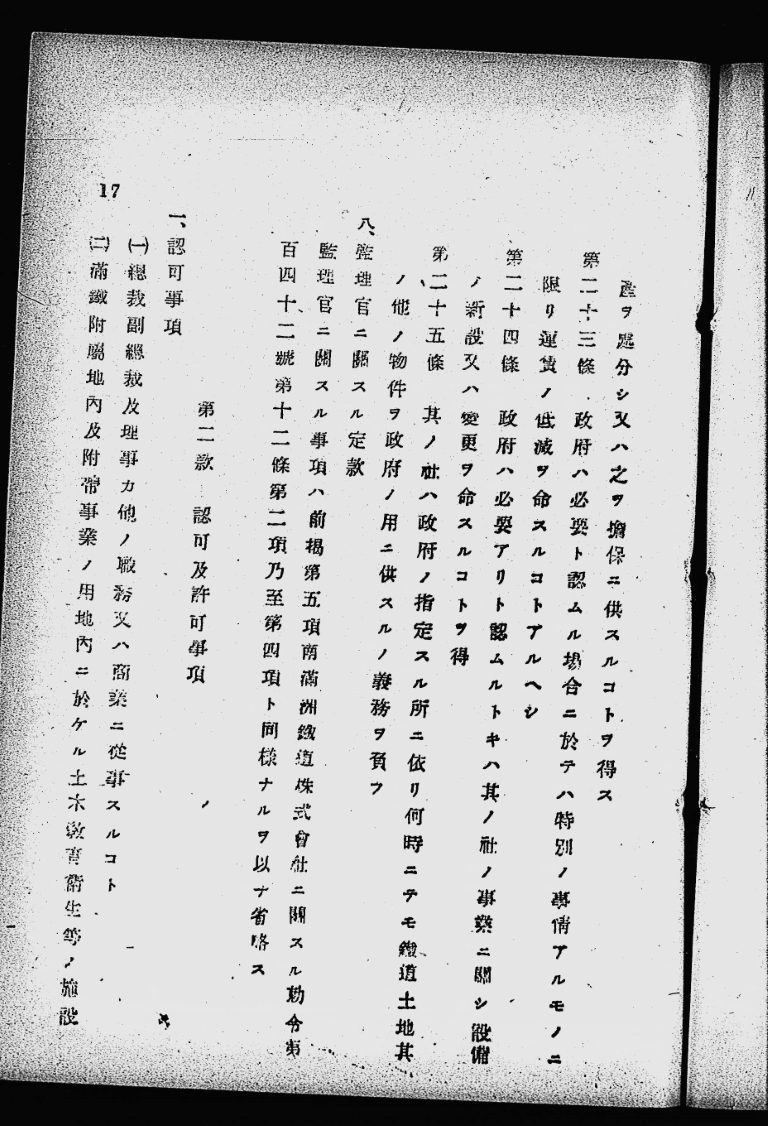 產ヲ處分シ又ハ之ヲ擔保ニ供スルコトヲ得ス
第二十三條 政府ハ必要ト認ムル場合ニ於テハ特別ノ事情アルモノニ
限リ運賃ノ低減ヲ命スルコトアルヘシ
第二十四條 政府ハ必要アリト認ムルトキハ其ノ社ノ事業ニ關シ設備
ノ新設又ハ變更ヲ命スルコトヲ得
第二十五條 其ノ社ハ政府ノ指定スル所ニ依リ何時ニテモ鐵道土地其
ノ他ノ物件ヲ政府ノ用ニ供スルノ義務ヲ負フ
八、監理官ニ關スル定款
監理官ニ關スル事項ハ前揭第五項南滿洲鐵道株式會社ニ關スル勅令第
百四十二號第十二條第二項乃至第四項ト同樣ナルヲ以テ省略ス
第二款 認可及許可事項
一、認可事項
㈠總裁副總裁及理事カ他ノ職務又ハ商業ニ從事スルコト
㈡滿鐵附屬地內及附帶事業ノ用地內ニ於ケル土木敎育衞生等ノ施設
17